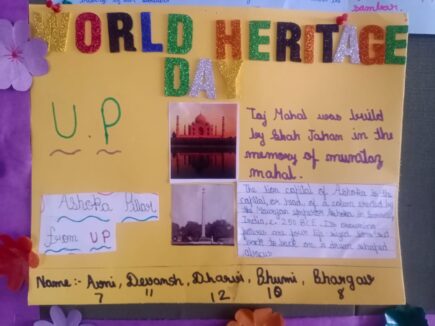 sambar.
WORLD HERITAGE
DAY
U.P
Taj Mahal was build
by Shah Jahan in the
memory of mumtaz
mahal.
Ashoka Pillar
from UP
The lion capital of Ashoka is the
capital, or head, of a column erected by
the Mauryan emperor Ashoka in Sarnath,
India, c. 250 BCE. Its crowning
features are four life sized lions set
back to back on a drum shaped
abacus.
Name:- Avni, Devansh, Dharvi, Bhumi, Bhargav
7 11 12 10 8